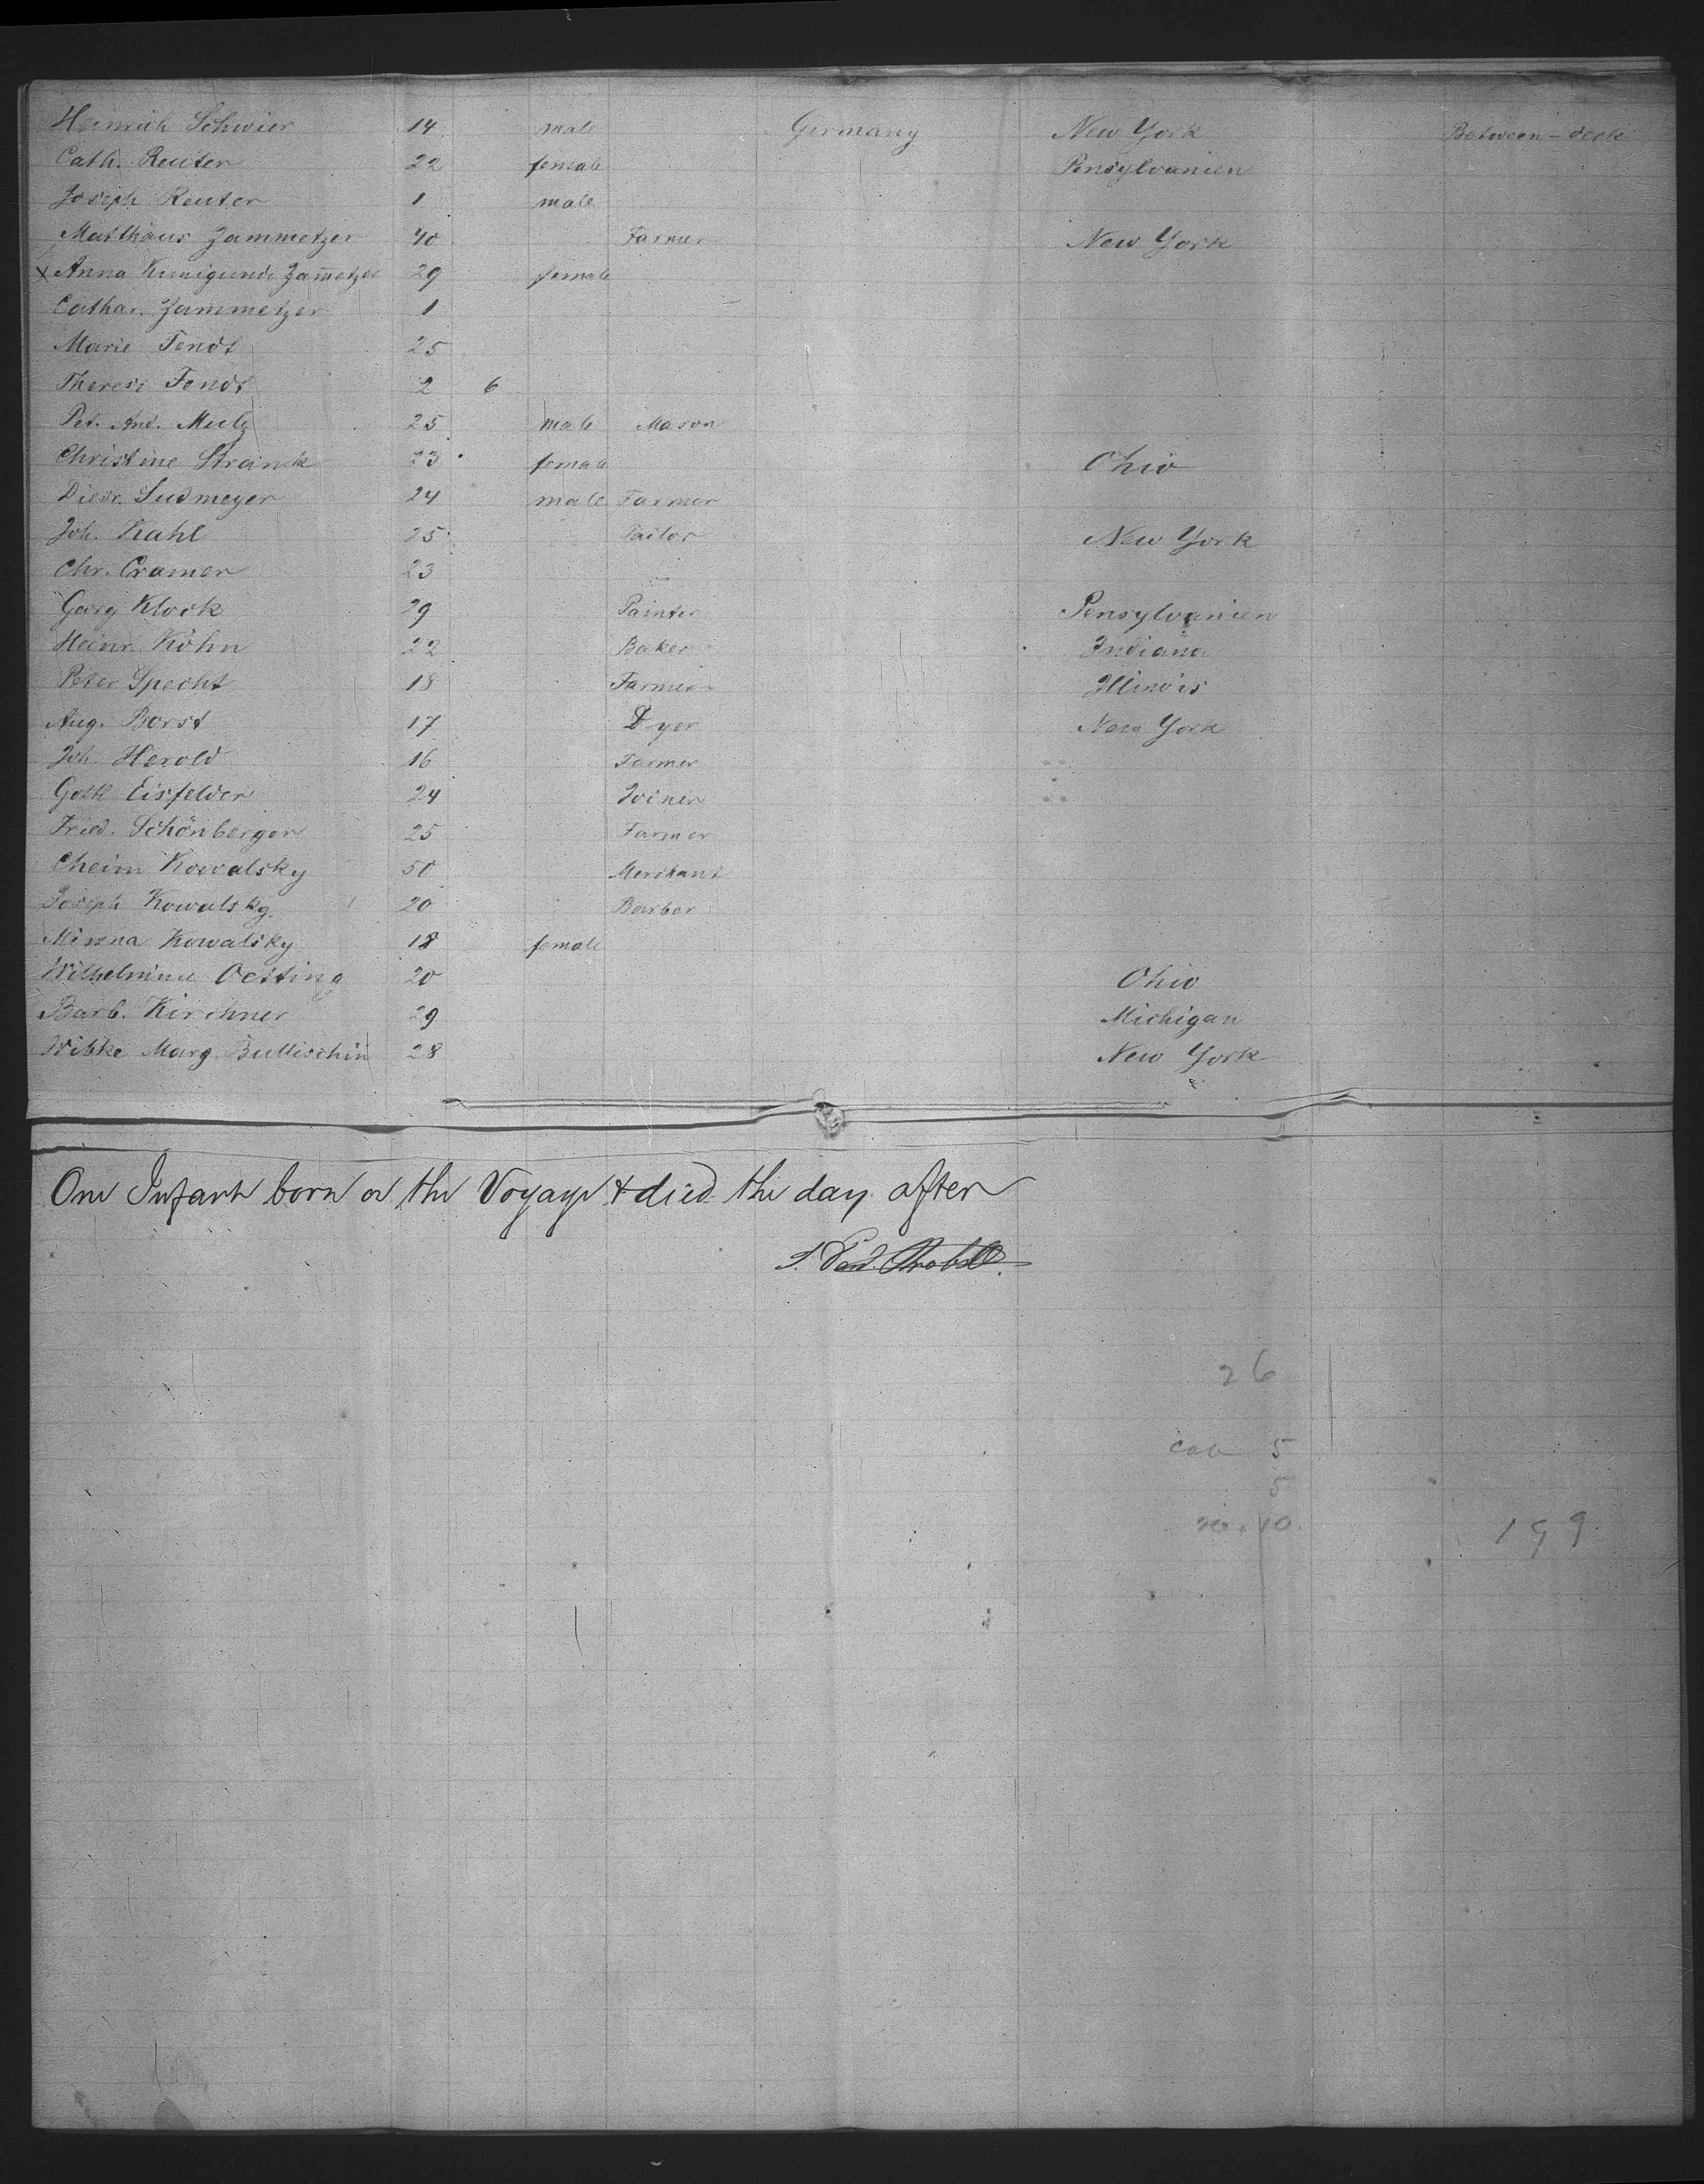 Heinrich Schwier 14 male Germany New York Between-deck
Cath. Reuter 22 female Pensylvanien
Joseph Reuter 1 male
Matthäus Zammetzer 40 Farmer New York
x Anna Kunigunde Zam̅etzer 29 female
Cathar. Zammetzer 1
Marie Fendt 25
Therese Fendt 2 6
Pet. And. 25 male Mason
Christine Stranck 23 female Ohio
Diedr. Sudmeyer 24 male Farmer
Joh. Kahl 25 Tailor New York
Chr. Cramer 23
Georg Klock 29 Painter Pensylvanien
Heinr. Köhn 22 Baker Indiana
Peter Specht 18 Farmer Illinois
Aug. Borst 17 Dyer New York
Joh Herold 16 Farmer
Gottl Eisfelder 24 Joiner
Fried. Schönberger 25 Farmer
Cheim Kowalsky 50 Merchant
Joseph Kowalsky 20 Barber
Minna Kowalsky 18 female
Wilhelmine Oetting 20 Ohio
Barb. Kirchner 29 Michigan
Wibke Marg. 28 New York
One Infant born on the Voyage & died the day after
26
cab 5
5
10
199